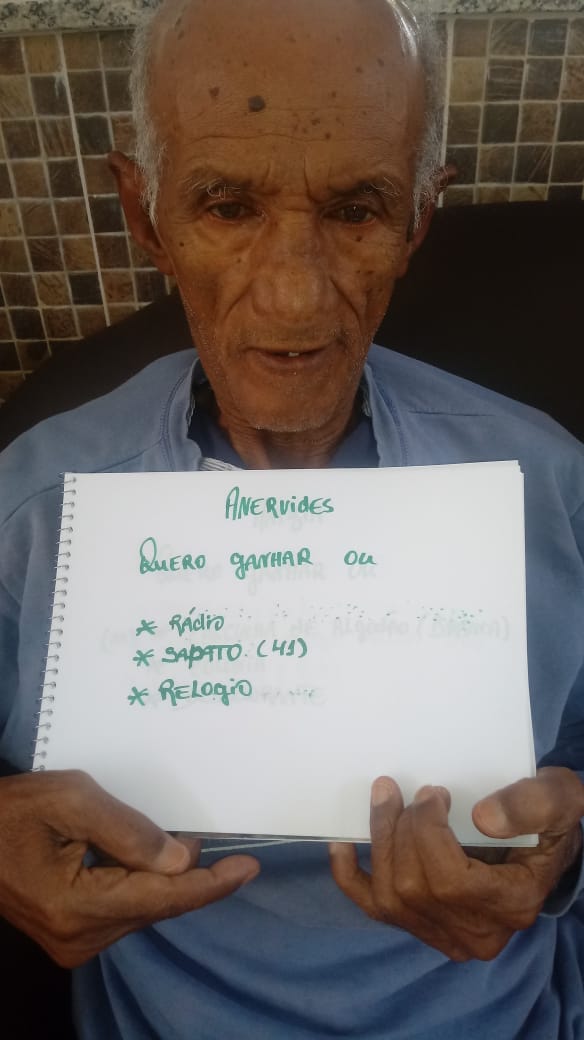 ANERVIDES
QUERO GANHAR OU
* RÁDIO
* SAPATO (41)
* RELOGIO